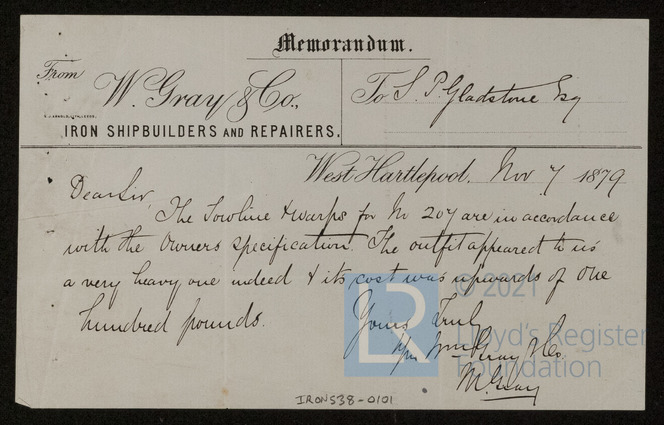 Memorandum.
From
W. Gray & Co.,
IRON SHIPBUILDERS AND REPAIRERS.
To S. P. Gladstone Esq
West Hartlepool, Nov 7 1879
Dear Sir,
The Towline & warps for No 207 are in accordance
with the Owners specification. The outfit appeared to us
a very heavy one indeed & its cost was upwards of one
hundred pounds.
Yours Truly
Wm Gray & Co.
M. Gray
IRON538-0101
LR
© 2021
Lloyd's Register
Foundation